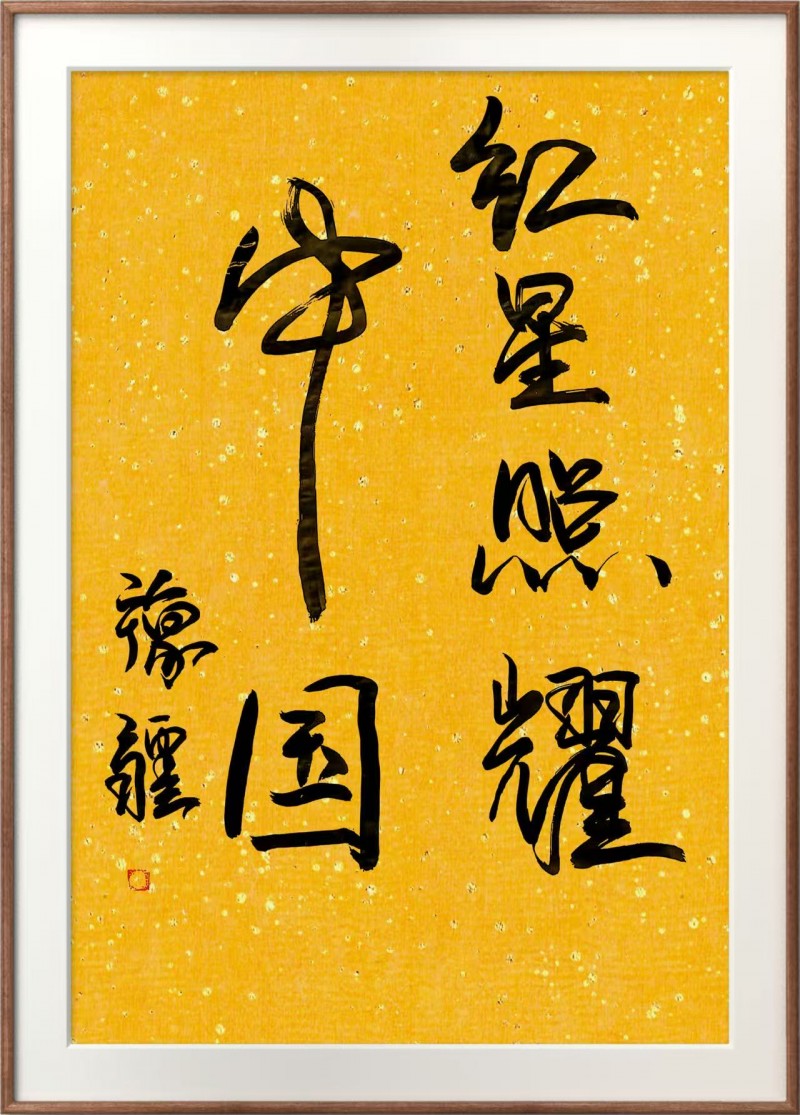 红星照耀
中国
豫疆